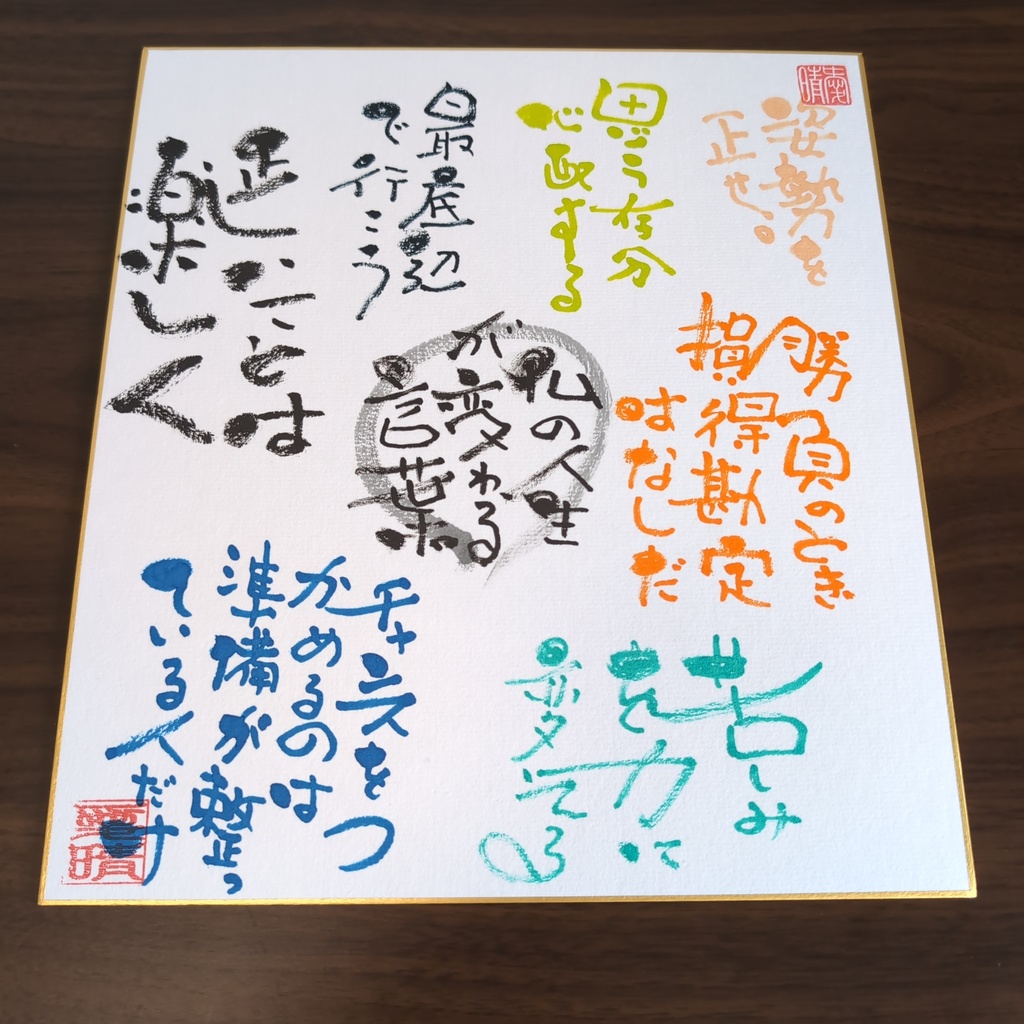 姿勢を
正せ。
思う存分
心配する
最底辺
で行こう
正しいことは
楽しく
勝負のとき
損得勘定
はなしだ
私の人生
が変わる
言葉
苦しみ
を力に
変える
チャンスをつ
かめるのは
準備が整っ
ている人だけ